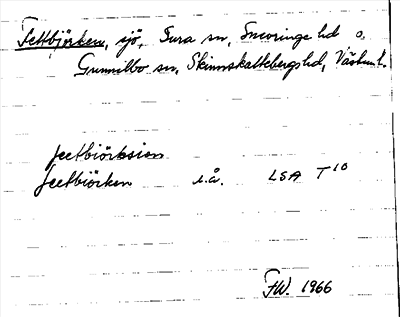 Fettbjörken, sjö, Sura sn, Snevringe hd o.
Gunnilbo sn, Skinnskattebergs hd, Västm.l.
feetbiörksien
feetbiörken u.å. LSA T 10
FW. 1966